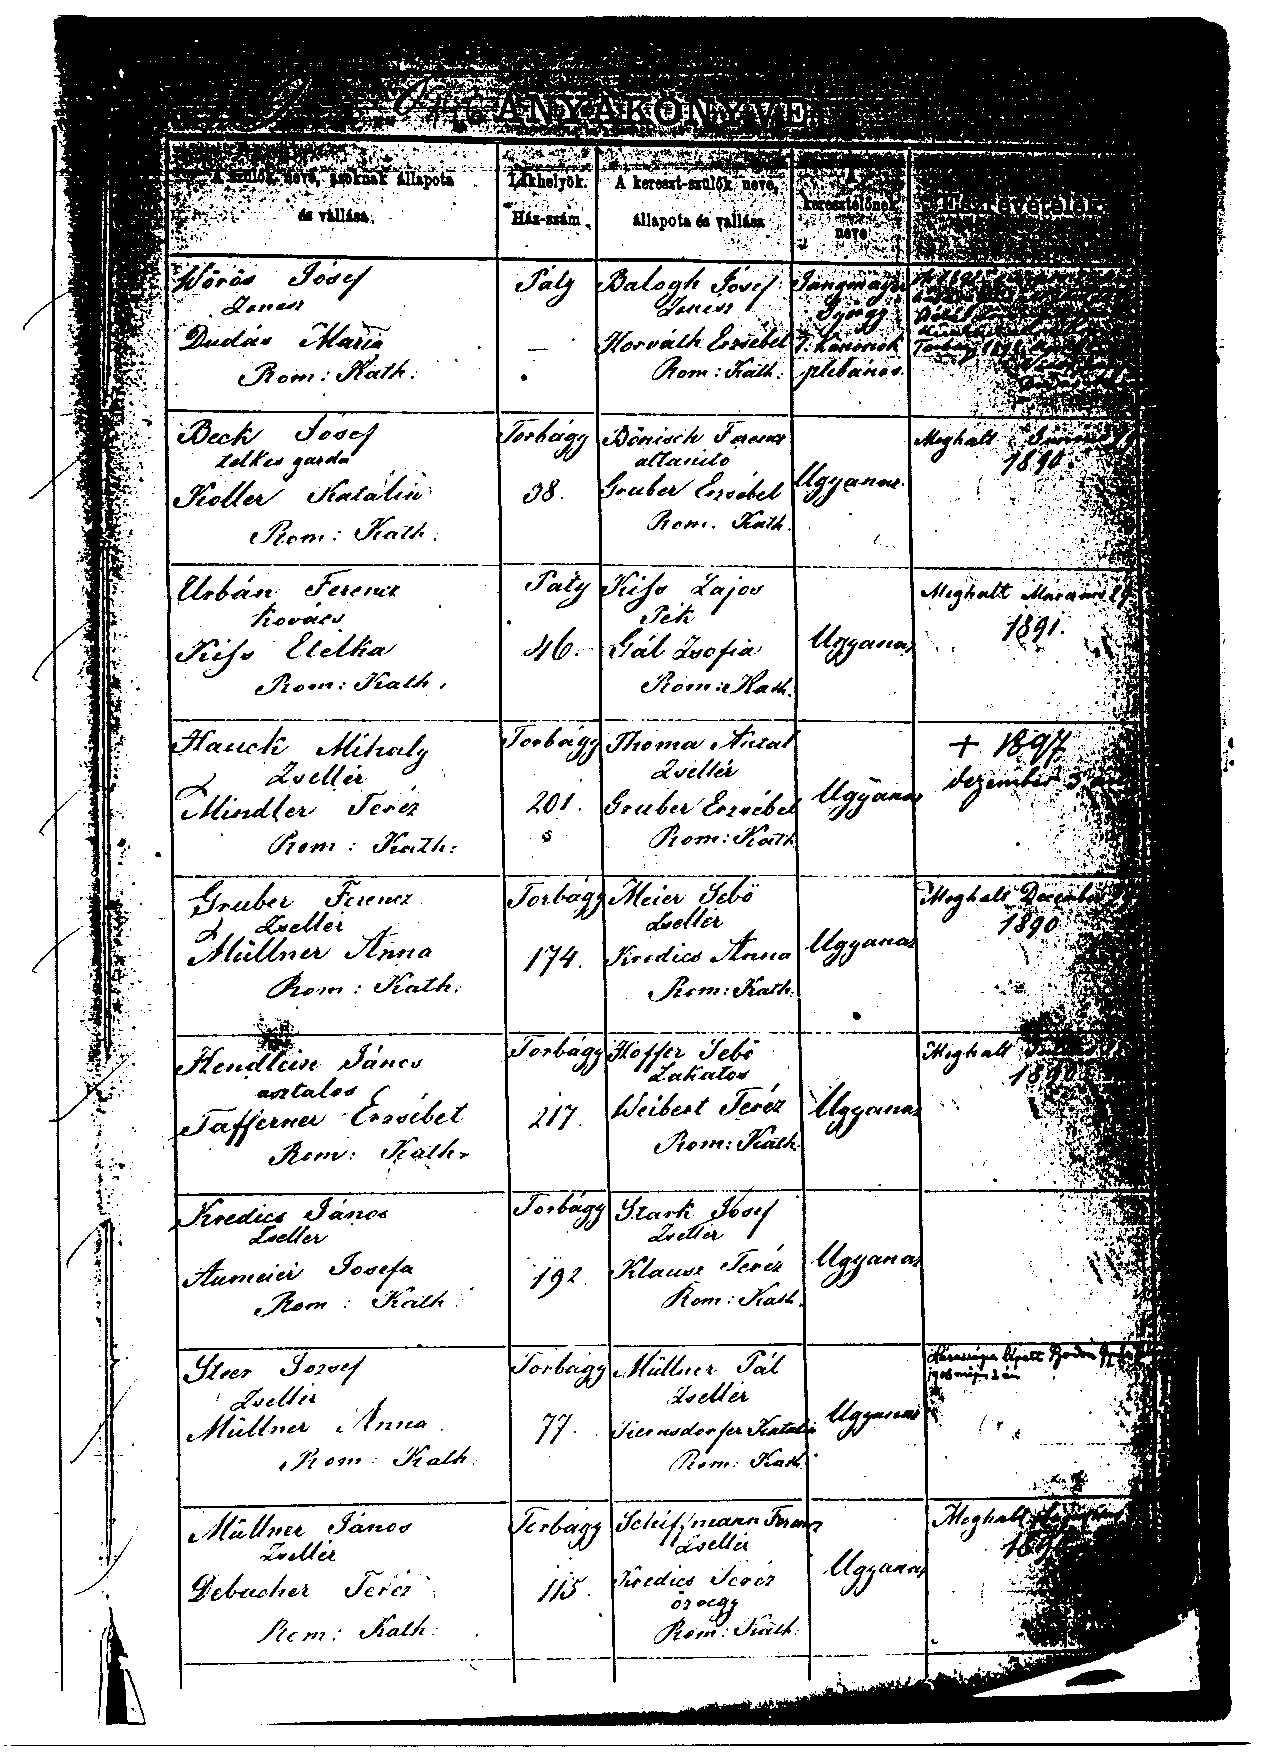 ANYAKÖNYVE
A szülők neve, azoknak állapota
és vallása.
Lakhelyök.
Ház-szám.
A kereszt-szülők neve,
állapota és vallása
A
keresztelőnek
neve
Észrevételek.
Vörös Jósef
Dudás Mária
Rom: Kath.
Páty
—
Balogh Jósef
Horváth Erzsébet
Rom: Kath.
Jungmayer
György
T. kanonok
plébános.
Beck Jósef
telkes gazda
Koller Katalin
Rom: Kath.
Torbágy
38.
Bönisch Ferencz
altanitó
Gruber Erzsébet
Rom. Kath.
Ugyanaz.
Meghalt
1890.
Urbán Ferencz
Kovács
Kiss Etelka
Rom: Kath.
Páty
46.
Kiss Lajos
Pék
Gál Zsofia
Rom: Kath.
Ugyanaz
Meghalt Marcius 29
1891.
Hauck Mihaly
Zsellér
Mindler Teréz
Rom: Kath:
Torbágy
201.
Thoma Antal
Zsellér
Gruber Erzsébet
Rom: Kath
Ugyanaz
+ 1897
dezember
Gruber Ferencz
Zsellér
Müllner Anna
Rom: Kath.
Torbágy
174.
Meier Sebö
Zsellér
Kredics Anna
Rom: Kath.
Ugyanaz
Meghalt December
1890
Hendlein János
asztalos
Tafferner Erzsébet
Rom: Kath.
Torbágy
217.
Hoffer Sebö
Lakatos
Weibert Teréz
Rom: Kath.
Ugyanaz
Meghalt
1890
Kredics János
Zsellér
Aumeier Josefa
Rom: Kath.
Torbágy
192.
Stark Jósef
Zsellér
Klausz Teréz
Rom: Kath.
Ugyanaz
Steer Jozsef
Zsellér
Müllner Anna
Rom: Kath.
Torbágy
77.
Müllner Pál
Zsellér
Katalin
Rom: Kath.
Ugyanaz
Müllner János
Zsellér
Debacher Teréz
Rom: Kath.
Torbágy
115.
Schiffmann Ferencz
Zsellér
Kredics Teréz
özvegy
Rom: Kath.
Ugyanaz
Meghalt